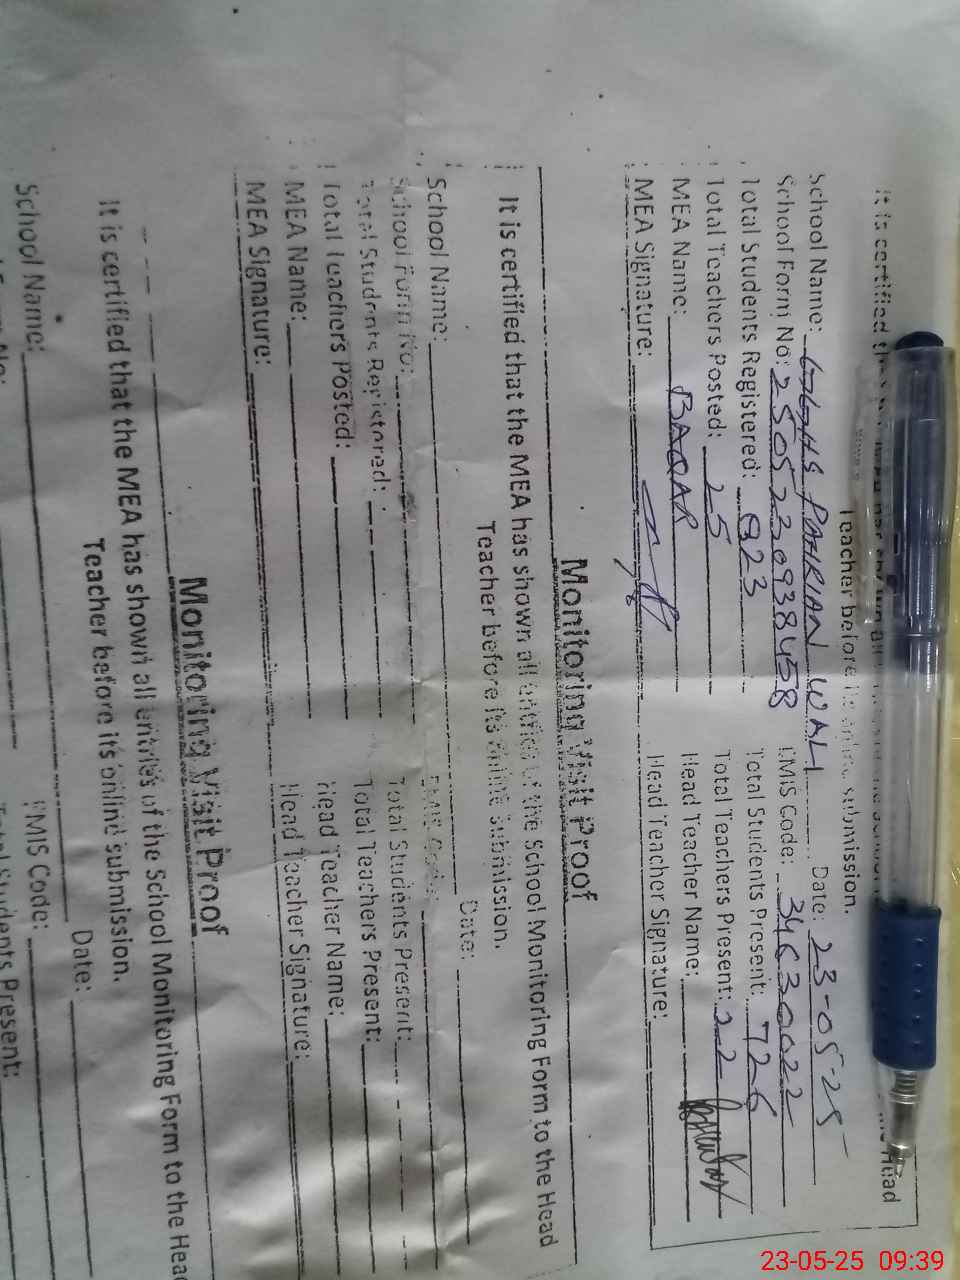 It is certified th
Head
Teacher before its online submission.
School Name: GGHS PAHRIAN WALI Date: 23-05-25
School Form No: 2505230938458 EMIS Code: 34630022
Total Students Registered: 823 Total Students Present: 726
Total Teachers Posted: 25 Total Teachers Present: 22
MEA Name: BAQAR Head Teacher Name:
MEA Signature: Head Teacher Signature:
Monitoring Visit Proof
It is certified that the MEA has shown all entries of the School Monitoring Form to the Head
Teacher before its online submission.
School Name: Date:
School Form No: EMIS Code:
Total Students Registered: Total Students Present:
Total Teachers Posted: Total Teachers Present:
MEA Name: Head Teacher Name:
MEA Signature: Head Teacher Signature:
Monitoring Visit Proof
It is certified that the MEA has shown all entries of the School Monitoring Form to the Head
Teacher before its online submission.
School Name: Date:
EMIS Code:
Total Students Present:
23-05-25 09:39